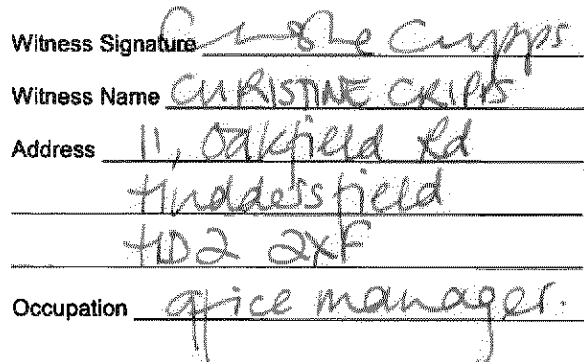 Witness Signature Christine Cripps
Witness Name CHRISTINE CRIPPS
Address 11, Oakfield Rd
Huddersfield
HD2 2XF
Occupation office manager.